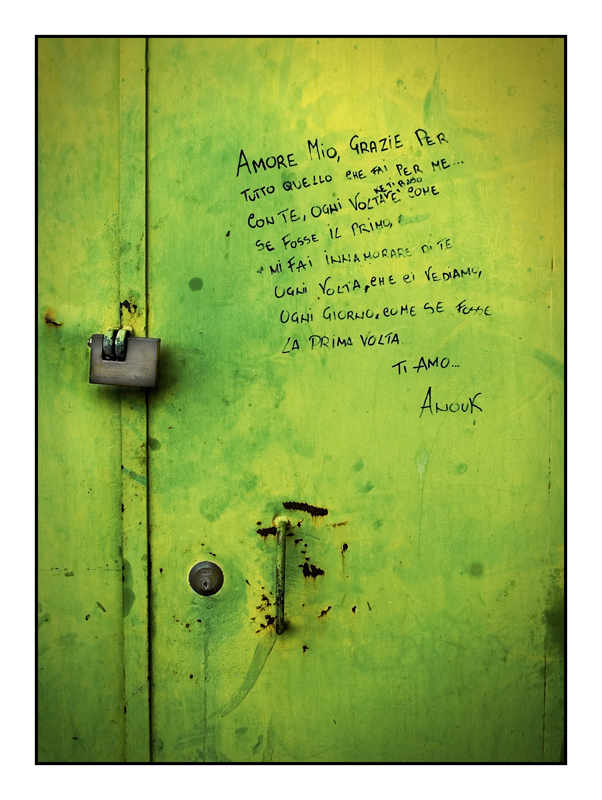 AMORE MIO, GRAZIE PER
TUTTO QUELLO CHE FAI PER ME...
CON TE, OGNI VOLTA È COME
SE FOSSE IL PRIMO,
MI FAI INNAMORARE DI TE
OGNI VOLTA, CHE CI VEDIAMO,
OGNI GIORNO, COME SE FOSSE
LA PRIMA VOLTA...
TI AMO...
ANOUK